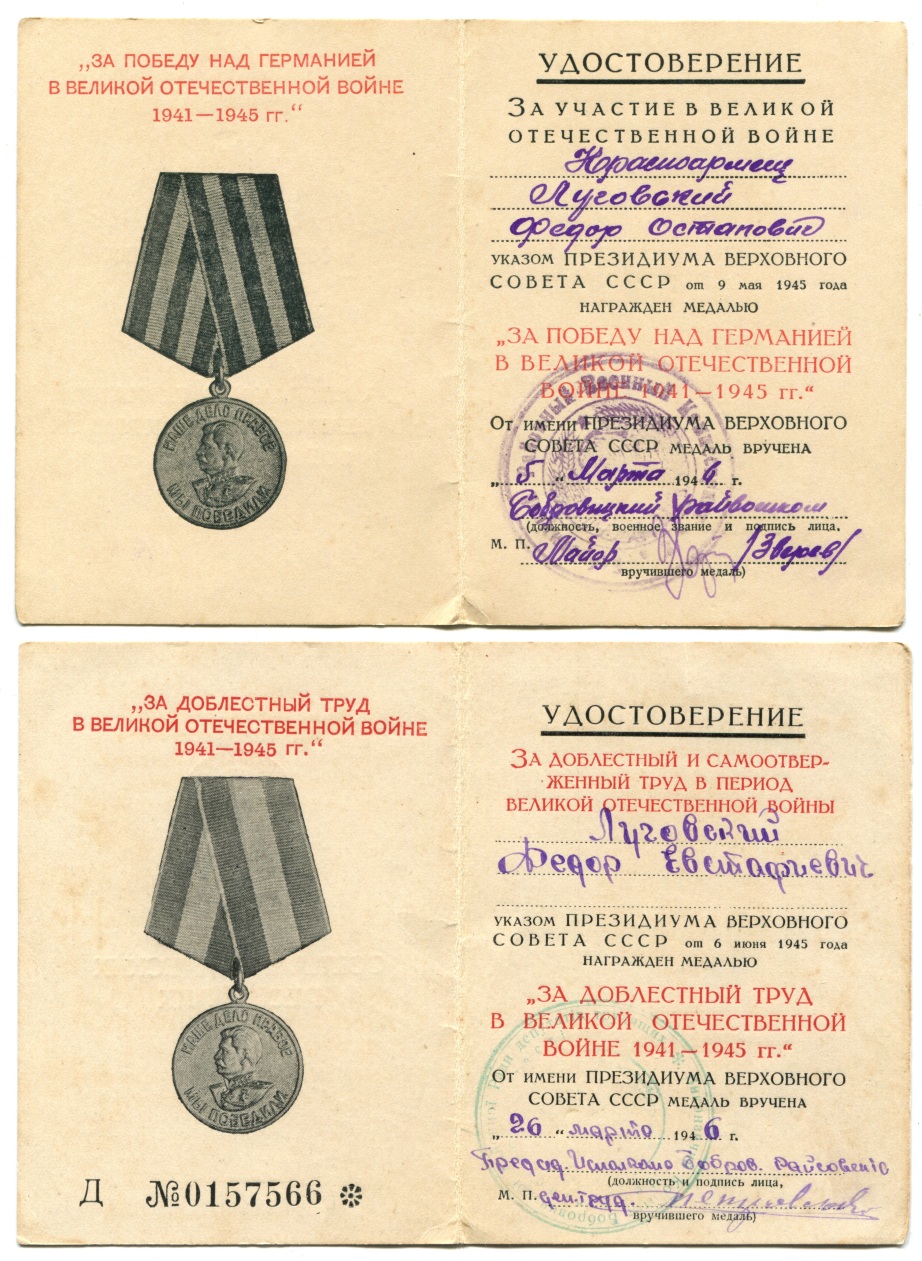 „ЗА ПОБЕДУ НАД ГЕРМАНИЕЙ
В ВЕЛИКОЙ ОТЕЧЕСТВЕННОЙ ВОЙНЕ
1941—1945 гг.“
НАШЕ ДЕЛО ПРАВОЕ
МЫ ПОБЕДИЛИ
УДОСТОВЕРЕНИЕ
ЗА УЧАСТИЕ В ВЕЛИКОЙ
ОТЕЧЕСТВЕННОЙ ВОЙНЕ
Красноармеец
Луговский
Федор Остапович
УКАЗОМ ПРЕЗИДИУМА ВЕРХОВНОГО
СОВЕТА СССР от 9 мая 1945 года
НАГРАЖДЕН МЕДАЛЬЮ
„ЗА ПОБЕДУ НАД ГЕРМАНИЕЙ
В ВЕЛИКОЙ ОТЕЧЕСТВЕННОЙ
ВОЙНЕ 1941—1945 гг.“
От имени ПРЕЗИДИУМА ВЕРХОВНОГО
СОВЕТА СССР МЕДАЛЬ ВРУЧЕНА
„5“ Марта 1946 г.
Бобровицкий райвоенком
(должность, военное звание и подпись лица,
М. П. Майор /Зверев/
вручившего медаль)
„ЗА ДОБЛЕСТНЫЙ ТРУД
В ВЕЛИКОЙ ОТЕЧЕСТВЕННОЙ ВОЙНЕ
1941—1945 гг.“
НАШЕ ДЕЛО ПРАВОЕ
МЫ ПОБЕДИЛИ
Д №0157566
УДОСТОВЕРЕНИЕ
ЗА ДОБЛЕСТНЫЙ И САМООТВЕР-
ЖЕННЫЙ ТРУД В ПЕРИОД
ВЕЛИКОЙ ОТЕЧЕСТВЕННОЙ ВОЙНЫ
Луговский
Федор Евстафиевич
УКАЗОМ ПРЕЗИДИУМА ВЕРХОВНОГО
СОВЕТА СССР от 6 июня 1945 года
НАГРАЖДЕН МЕДАЛЬЮ
„ЗА ДОБЛЕСТНЫЙ ТРУД
В ВЕЛИКОЙ ОТЕЧЕСТВЕННОЙ
ВОЙНЕ 1941—1945 гг.“
От имени ПРЕЗИДИУМА ВЕРХОВНОГО
СОВЕТА СССР МЕДАЛЬ ВРУЧЕНА
„26“ марта 1946 г.
Председ Исполкома Бобров. райсовета
(должность и подпись лица,
М. П. деп. труд.
вручившего медаль)